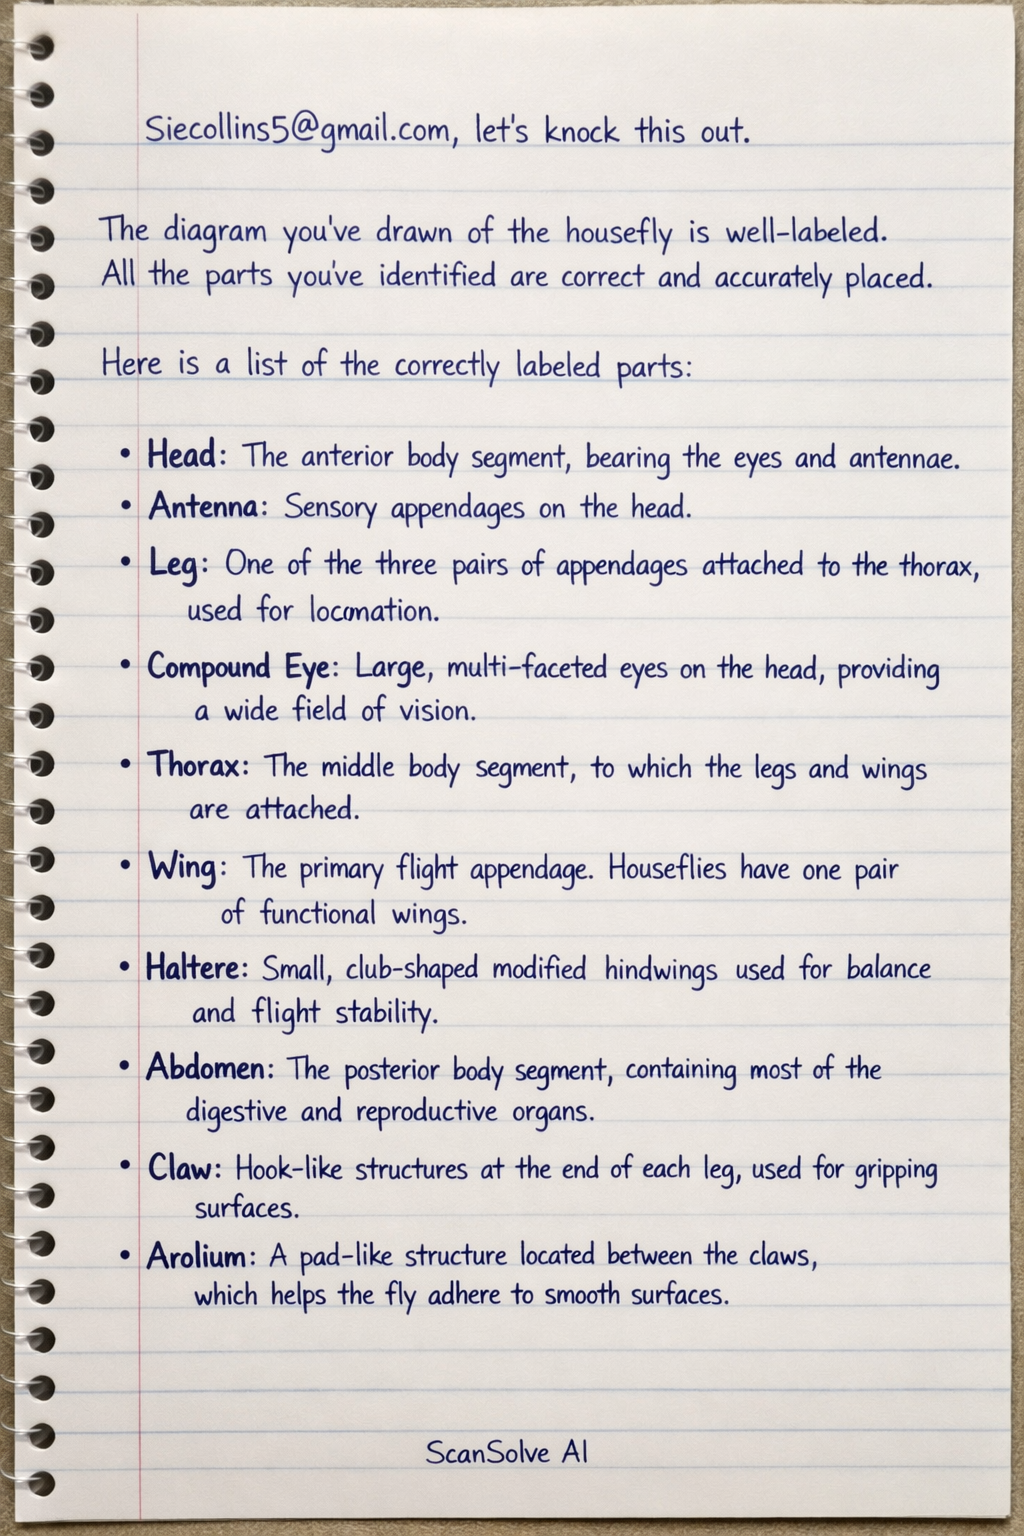 Siecollins5@gmail.com, let's knock this out.
The diagram you've drawn of the housefly is well-labeled.
All the parts you've identified are correct and accurately placed.
Here is a list of the correctly labeled parts:
• Head: The anterior body segment, bearing the eyes and antennae.
• Antenna: Sensory appendages on the head.
• Leg: One of the three pairs of appendages attached to the thorax,
used for
• Compound Eye: Large, multi-faceted eyes on the head, providing
a wide field of vision.
• Thorax: The middle body segment, to which the legs and wings
are attached.
• Wing: The primary flight appendage. Houseflies have one pair
of functional wings.
• Haltere: Small, club-shaped modified hindwings used for balance
and flight stability.
• Abdomen: The posterior body segment, containing most of the
digestive and reproductive organs.
• Claw: Hook-like structures at the end of each leg, used for gripping
surfaces.
• Arolium: A pad-like structure located between the claws,
which helps the fly adhere to smooth surfaces.
ScanSolve AI